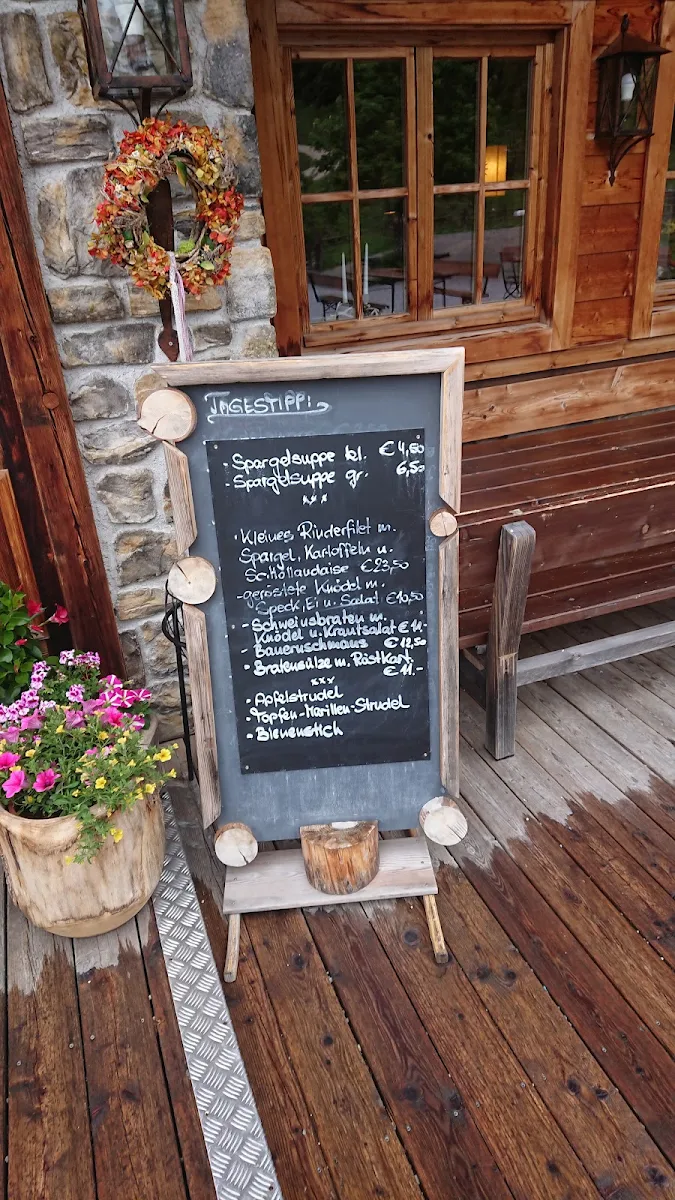 TAGESTIPP:
- Spargelsuppe kl. € 4,50
- Spargelsuppe gr. 6,50
xxx
- Kleines Rinderfilet m.
Spargel, Kartoffeln u.
Sc.Hollandaise € 23,50
- geröstete Knödel m.
Speck, Ei u. Salat € 10,50
- Schweinsbraten m.
Knödel u. Krautsalat € 11.-
- Bauernschmaus € 12,50
- Bratensülze m. Röstkart.
€ 11.-
xxx
- Apfelstrudel
- Topfen-Marillen-Strudel
- Bienenstich